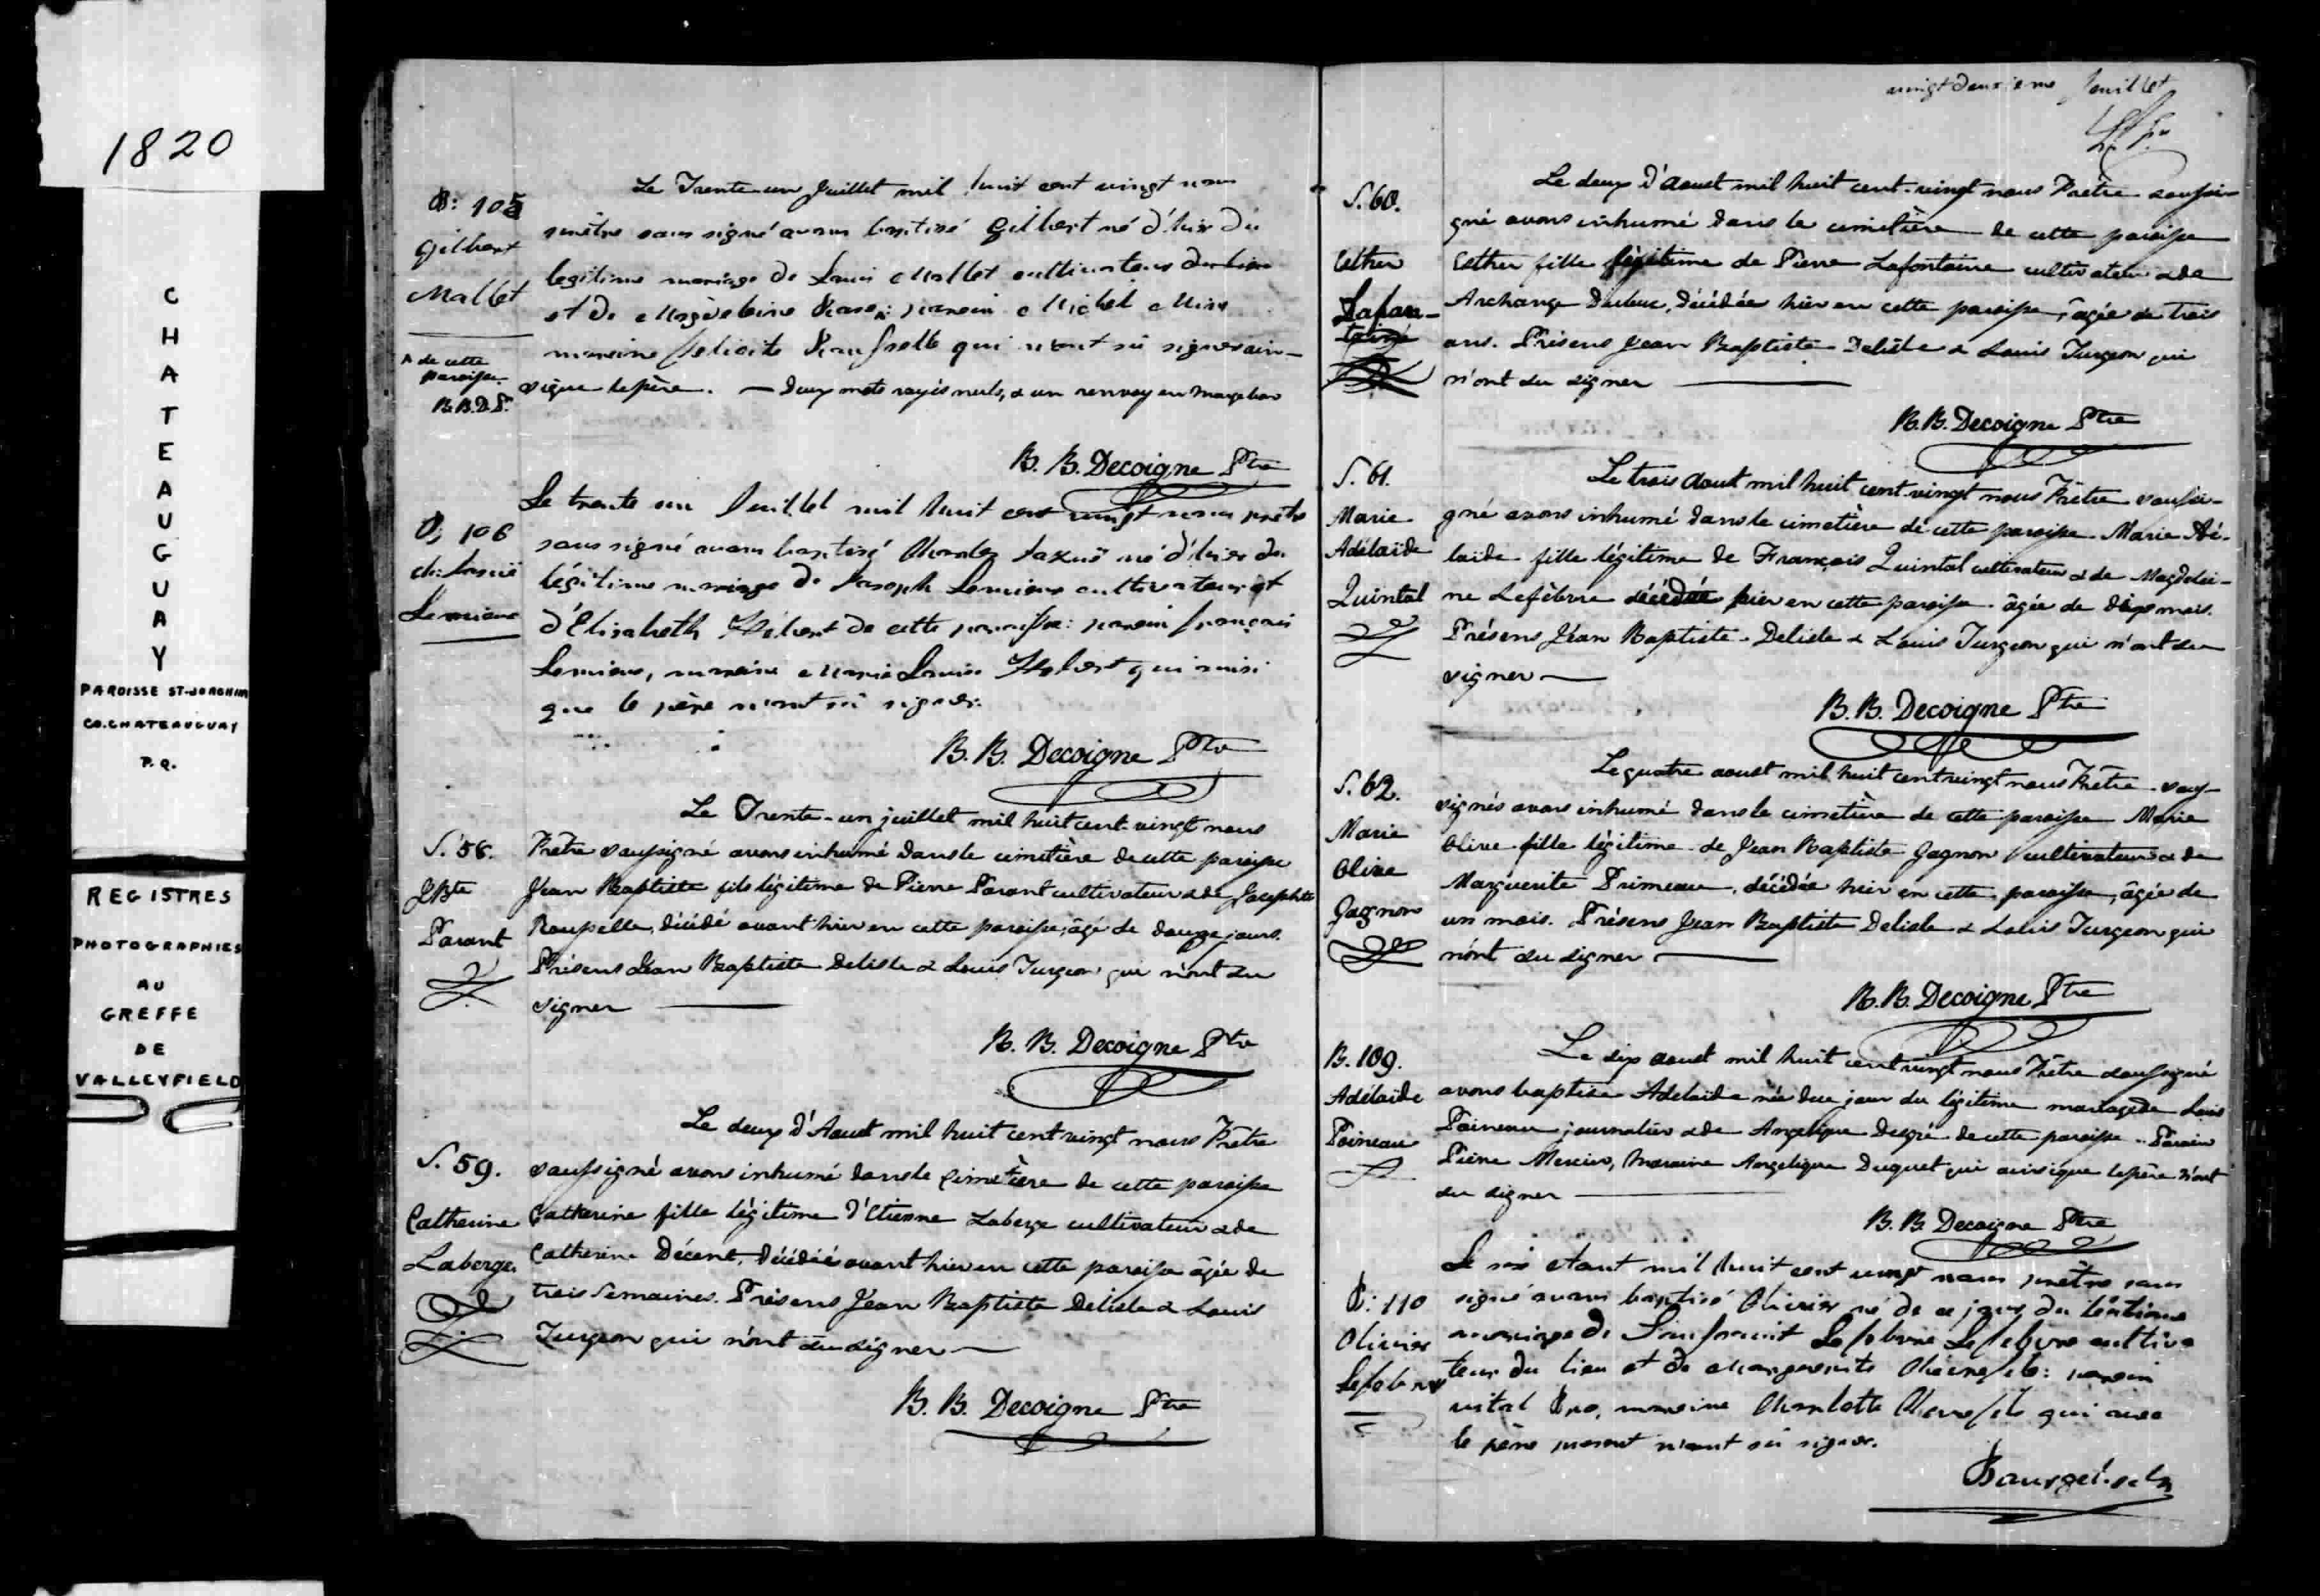 1820
CHATEAUGUAY
PAROISSE ST-JOACHIM
CO. CHATEAUGUAY
P.Q.
REGISTRES
PHOTOGRAPHIES
AU
GREFFE
DE
VALLEYFIELD
B: 105
Gilbert
Mallet
A de cette
paroisse.
B.B.D. Ptre
Le Trente un Juillet mil huit cent vingt nous
prêtre sous signé avons baptisé Gilbert né d'hier du
legitime mariage de Louis Mallet cultivateur
et de Magdeleine : parain Michel
maraine Felicité qui n'ont sû signer ain-
sique le père. — Deux mots rayés nuls, & un renvoy en marge bon
B. B. Decoigne Ptre
B; 106
Lemieux
Le trente un Juillet mil huit cent vingt nous prêtre
sous signé avons baptisé né d'hier du
légitime mariage de Joseph Lemieux cultivateur et
d'Elisabeth Hébert de cette paroisse: parain françois
Lemieux, maraine Marie Louise Hebert qui ainsi
que le père n'ont sû signer.
B. B. Decoigne Ptre
S. 58.
JBte
Parant
Le Trente-un juillet mil huit cent-vingt nous
Prêtre soussigné avons inhumé dans le cimetière de cette paroisse
Jean Baptiste fils légitime de Pierre Parant cultivateur & de Josephte
Roupelle, décédé avant hier en cette paroisse, âgé de douze jours.
Présens Jean Baptiste Delisle & Louis Turgeon qui n'ont su
signer
B. B. Decoigne Ptre
S. 59.
Catherine
Laberge
Le deux d'Aoust mil huit cent vingt nous Prêtre
soussigné avons inhumé dans le Cimetière de cette paroisse
Catherine fille légitime d'Etienne Laberge cultivateur & de
Catherine , décédée avant hier en cette paroisse âgée de
trois Semaines. Présens Jean Baptiste Delisle & Louis
Turgeon qui n'ont su signer —
B. B. Decoigne Ptre
vingt deuxieme feuillet
S. 60.
Esther
Lafon-
taine
Le deux d'Aoust mil huit cent-vingt nous Prêtre soussi-
gné avons inhumé dans le cimetière de cette paroisse
Esther fille légitime de Pierre Lafontaine cultivateur & de
Archange , décédée hier en cette paroisse, âgée de trois
ans. Présens Jean Baptiste Delisle & Louis Turgeon qui
n'ont su signer
B. B. Decoigne Ptre
S. 61.
Marie
Adélaïde
Quintal
Le trois Aout mil huit cent-vingt nous Prêtre soussi-
gné avons inhumé dans le cimetière de cette paroisse Marie Adé-
laïde fille légitime de François Quintal cultivateur & de Magdelei-
ne Lefebvre décédée hier en cette paroisse âgée de mois.
Présens Jean Baptiste Delisle & Louis Turgeon qui n'ont su
signer —
B. B. Decoigne Ptre
S. 62.
Marie
Olive
Gagnon
Le quatre aoust mil huit cent vingt nous Prêtre sous-
signés avons inhumé dans le cimetière de cette paroisse Marie
Olive fille légitime de Jean Baptiste Gagnon cultivateur & de
Marguerite Primeau, décédée hier en cette paroisse, âgée de
un mois. Présens Jean Baptiste Delisle & Louis Turgeon qui
n'ont su signer
B. B. Decoigne Ptre
B. 109.
Adélaïde
Poineau
Le six aoust mil huit cent vingt nous Prêtre soussigné
avons baptisé Adelaide née du jour du légitime mariage de Louis
Poineau journalier & de Angelique de cette paroisse. Parain
Pierre Mercier, Maraine Angelique Duquet qui ainsique le père n'ont
su signer
B. B. Decoigne Ptre
B: 110
Olivier
Lefebvre
Le six Aout mil huit cent vingt nous prêtre sous
signé avons baptisé Olivier né de ce jour, du légitime
mariage de Lefebvre cultiva
teur du lieu et de Marguerite : parain
vital , maraine Charlotte qui avec
le père present n'ont sû signer.